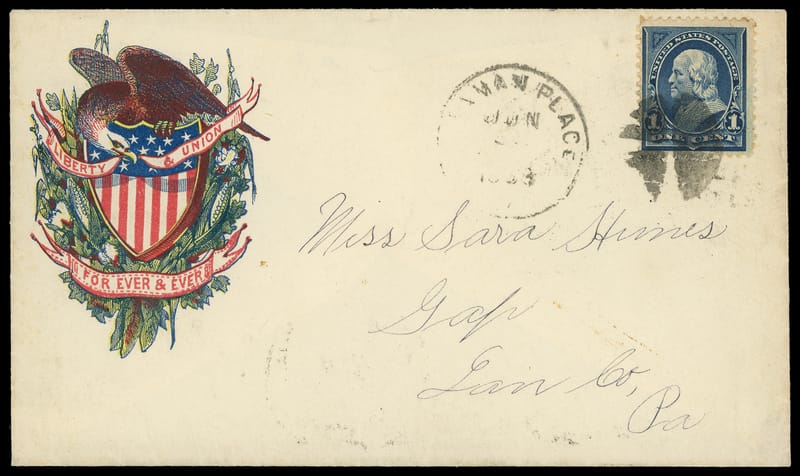 LIBERTY & UNION
FOR EVER & EVER
MAN PLACE
JUN
UNITED STATES POSTAGE
1 1
ONE CENT
Miss Sara Himes
Gap
Lan Co,
Pa